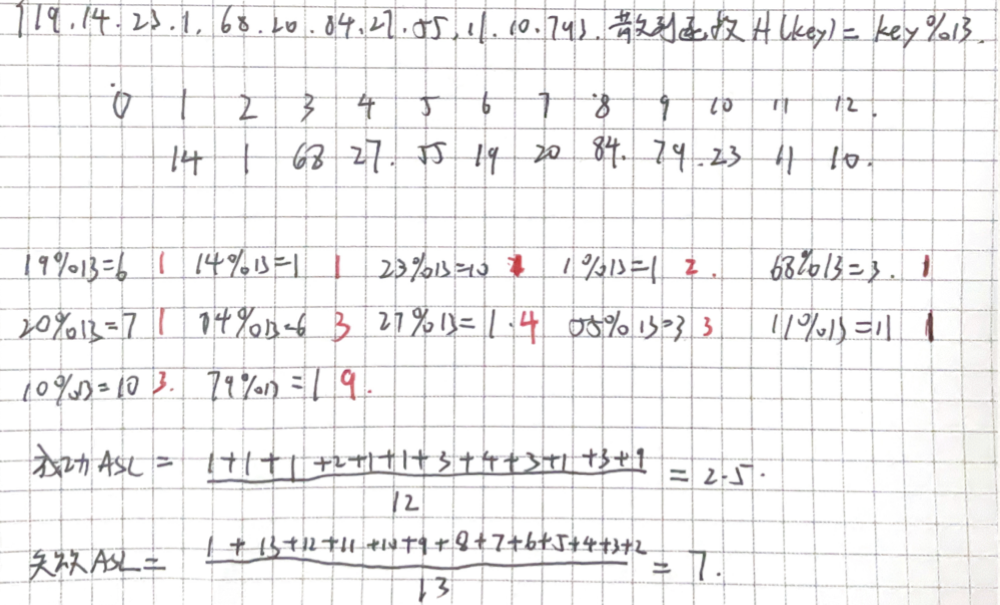 {19.14.23.1.68.20.84.27.55.11.10.79}.散列函数 H(key)=key%13.
0 1 2 3 4 5 6 7 8 9 10 11 12.
14 1 68 27. 55 19 20 84. 79.23 11 10.
19%13=6 1 14%13=1 1 23%13=10 1 1%13=1 2. 68%13=3. 1
20%13=7 1 84%13=6 3 27%13=1.4 55%13=3 3 11%13=11 1
10%13=10 3. 79%13=1 9.
成功ASL= 1+1+1+2+1+1+3+4+3+1+3+9
12
=2.5.
失败ASL= 1+13+12+11+10+9+8+7+6+5+4+3+2
13
=7.